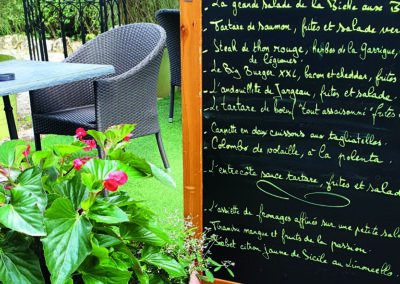 La grande salade de la Biche aux B
Tartare de saumon, frites et salade ver
Steak de thon rouge, de la Garrigue,
de légumes.
Le Big Burger XXL, bacon et cheddar, frites
L'andouillette de Jargeau, frites et salade.
Le tartare de boeuf "tout assaisonné" frites
en deux cuissons aux tagliatelles.
Colombo de volaille, à la polenta.
L'entrecôte sauce tartare, frites et salad
L'assiette de fromages affinés sur une petite sala
Tiramisu mangue et fruits de la passion.
Sorbet citron jaune de Sicile au Limoncello.